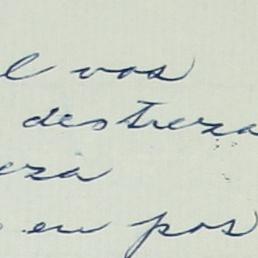 l vos
destreza
eza
en pos